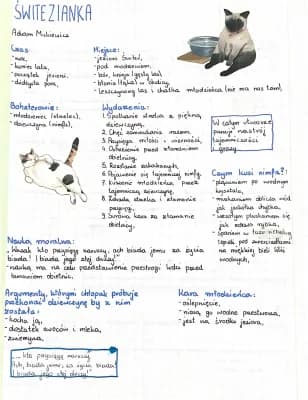 ŚWITEZIANKA
Adam Mickiewicz
Czas:
- noc,
- koniec lata,
- początek jesieni,
Miejsce:
- jezioro Świteź,
- pod modrzewiem,
- bór, knieja (gęsty las),
- błonia (łąka) w okolicy,
- leszczynowy las i chatka młodzieńca (nie ma nas tam)
Bohaterowie:
- młodzieniec (strzelec),
- dziewczyna (nimfa),
Wydarzenia:
1. Spotkanie strzelca z piękną
dziewczyną.
2. Chęć zamieszkania razem.
3. Przysięga miłości i wierności.
4. Ostrzeżenie przed złamaniem
obietnicy.
5. Rozstanie zakochanych,
6. Pojawienie się tajemniczej nimfy.
7. Kuszenie młodzieńca przez
tajemniczą dziewczynę.
8. Zdrada strzelca i złamanie
przysięgi.
9. Surowa kara za złamanie
obietnicy.
W całym utworze
panuje nastrój
tajemniczości
i grozy
Czym kusi nimfa?:
- pląsaniem po wodnym
krysztale,
jak jaskółka chybka,
- wesołym pluskaniem się
jak zdrowa rybka,
- spaniem w łożu
pod zwierciadłami
na miękkiej bieli lilii
wodnych,
Nauka moralna:
- Wszak kto przysięgę naruszy, ach biada jemu za życia
biada! I biada jego złej duszy!"
- nauka ma na celu przedstawienie przestrogi ludzi przed
łamaniem obietnic.
Argumenty, którymi chłopak próbuje
przekonać dziewczynę by z nim
została:
- kocha ją,
- dostatek owoców i mleka,
- zwierzyna,
Kara młodzieńca:
- oślepnięcie,
- jest na środku jeziora,
"... kto przysięgę naruszy,
Ach, biada jemu, za życia biada!
I biada jego złej duszy!"